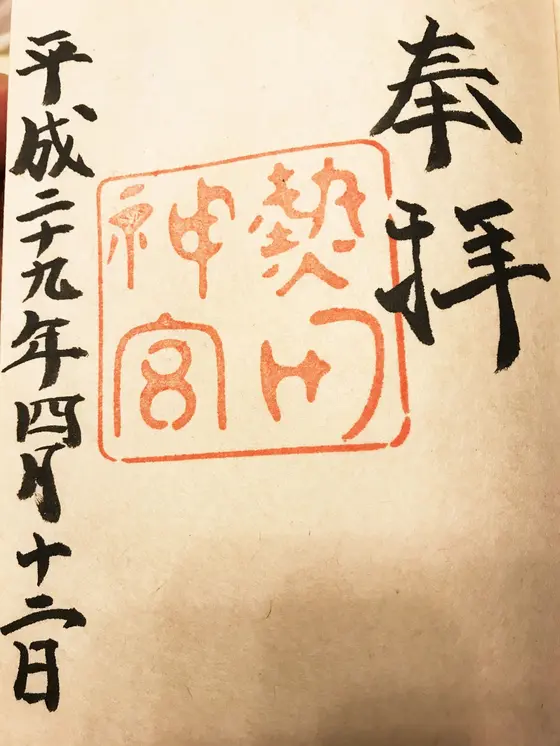 奉拝
熱田神宮
平成二十九年四月十二日